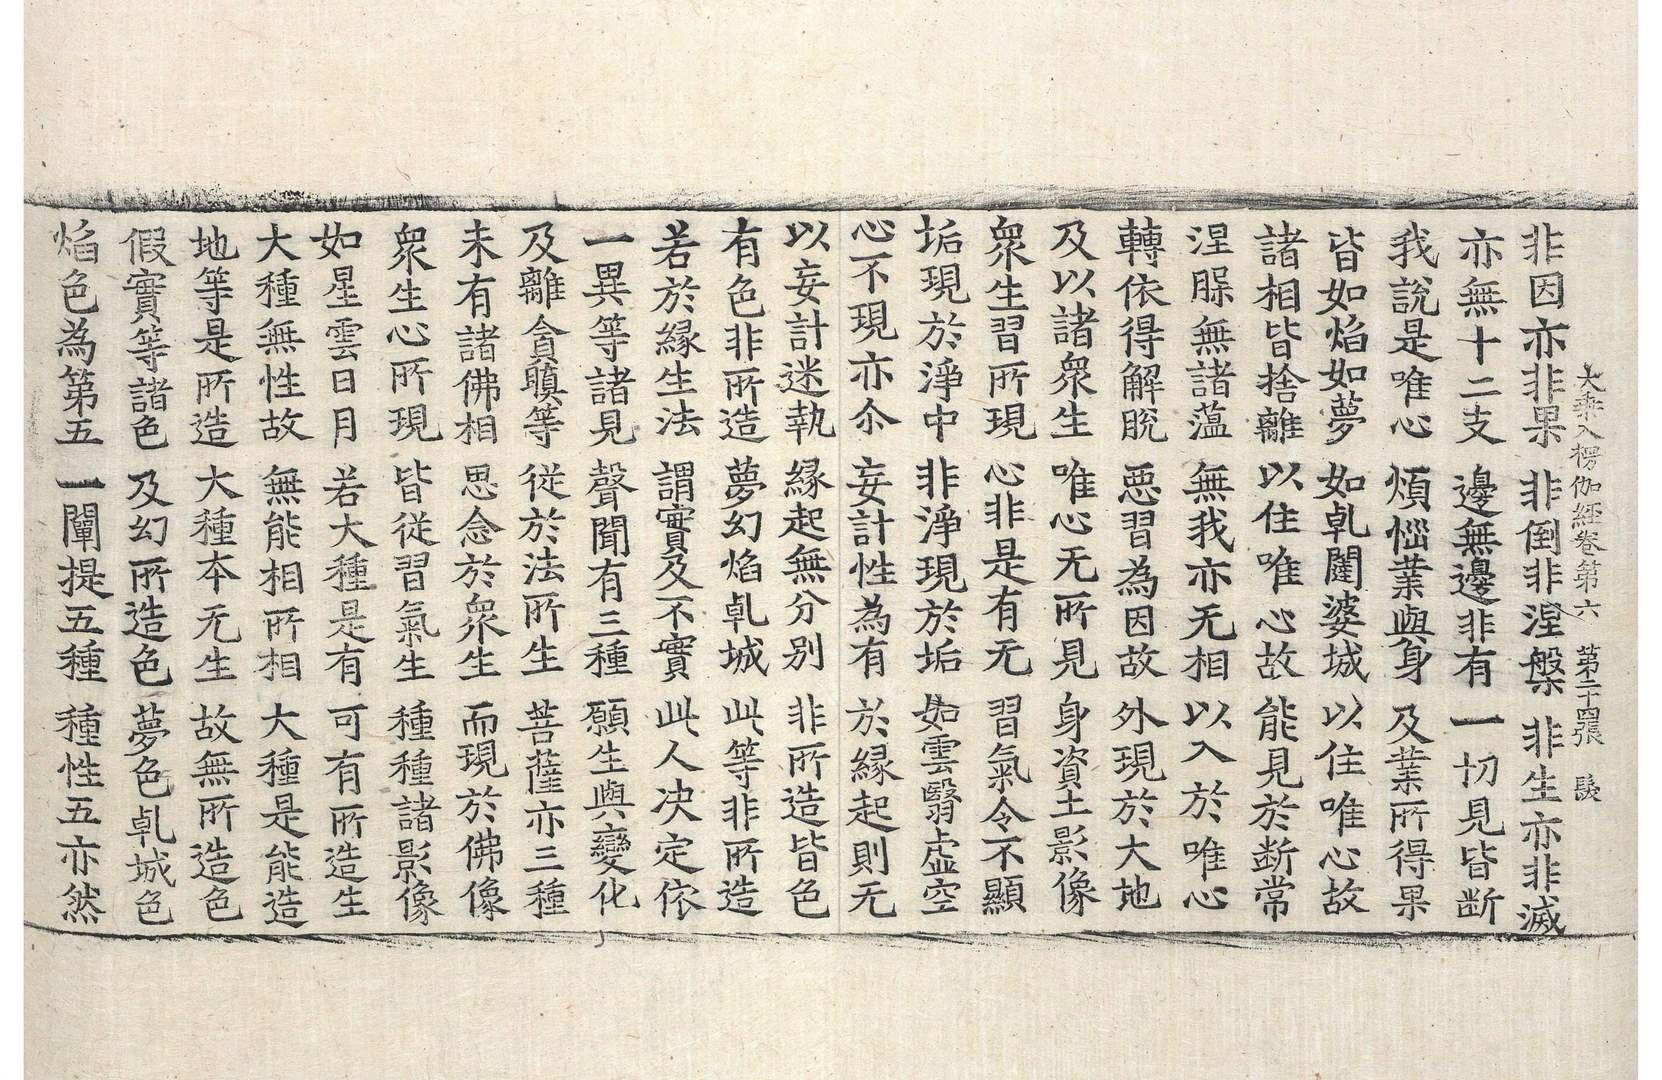 大乘入楞伽經卷第六　第二十四張　髮
非因亦非果　非倒非涅槃　非生亦非滅
亦無十二支　邊無邊非有　一切見皆断
我說是唯心　煩惱業與身　及業所得果
皆如焰如夢　如乹闥婆城　以住唯心故
諸相皆捨離　以住唯心故　能見於断常
涅槃無諸蕰　無我亦无相　以入於唯心
轉依得解脫　惡習為因故　外現於大地
及以諸衆生　唯心无所見　身資土影像
衆生習所現　心非是有无　習氣令不顯
垢現於淨中　非淨現於垢　如雲翳虛空
心不現亦尒　妄計性為有　於緣起則无
以妄計迷執　緣起無分别　非所造皆色
有色非所造　夢幻焰乹城　此等非所造
若於緣生法　謂實及不實　此人決定依
一異等諸見　聲聞有三種　願生與變化
及離貪瞋等　從於法所生　菩薩亦三種
未有諸佛相　思念於衆生　而現於佛像
衆生心所現　皆從習氣生　種種諸影像
如星雲日月　若大種是有　可有所造生
大種無性故　無能相所相　大種是能造
地等是所造　大種本无生　故無所造色
假實等諸色　及幻所造色　夢色乹城色
焰色為第五　一闡提五種　種性五亦然